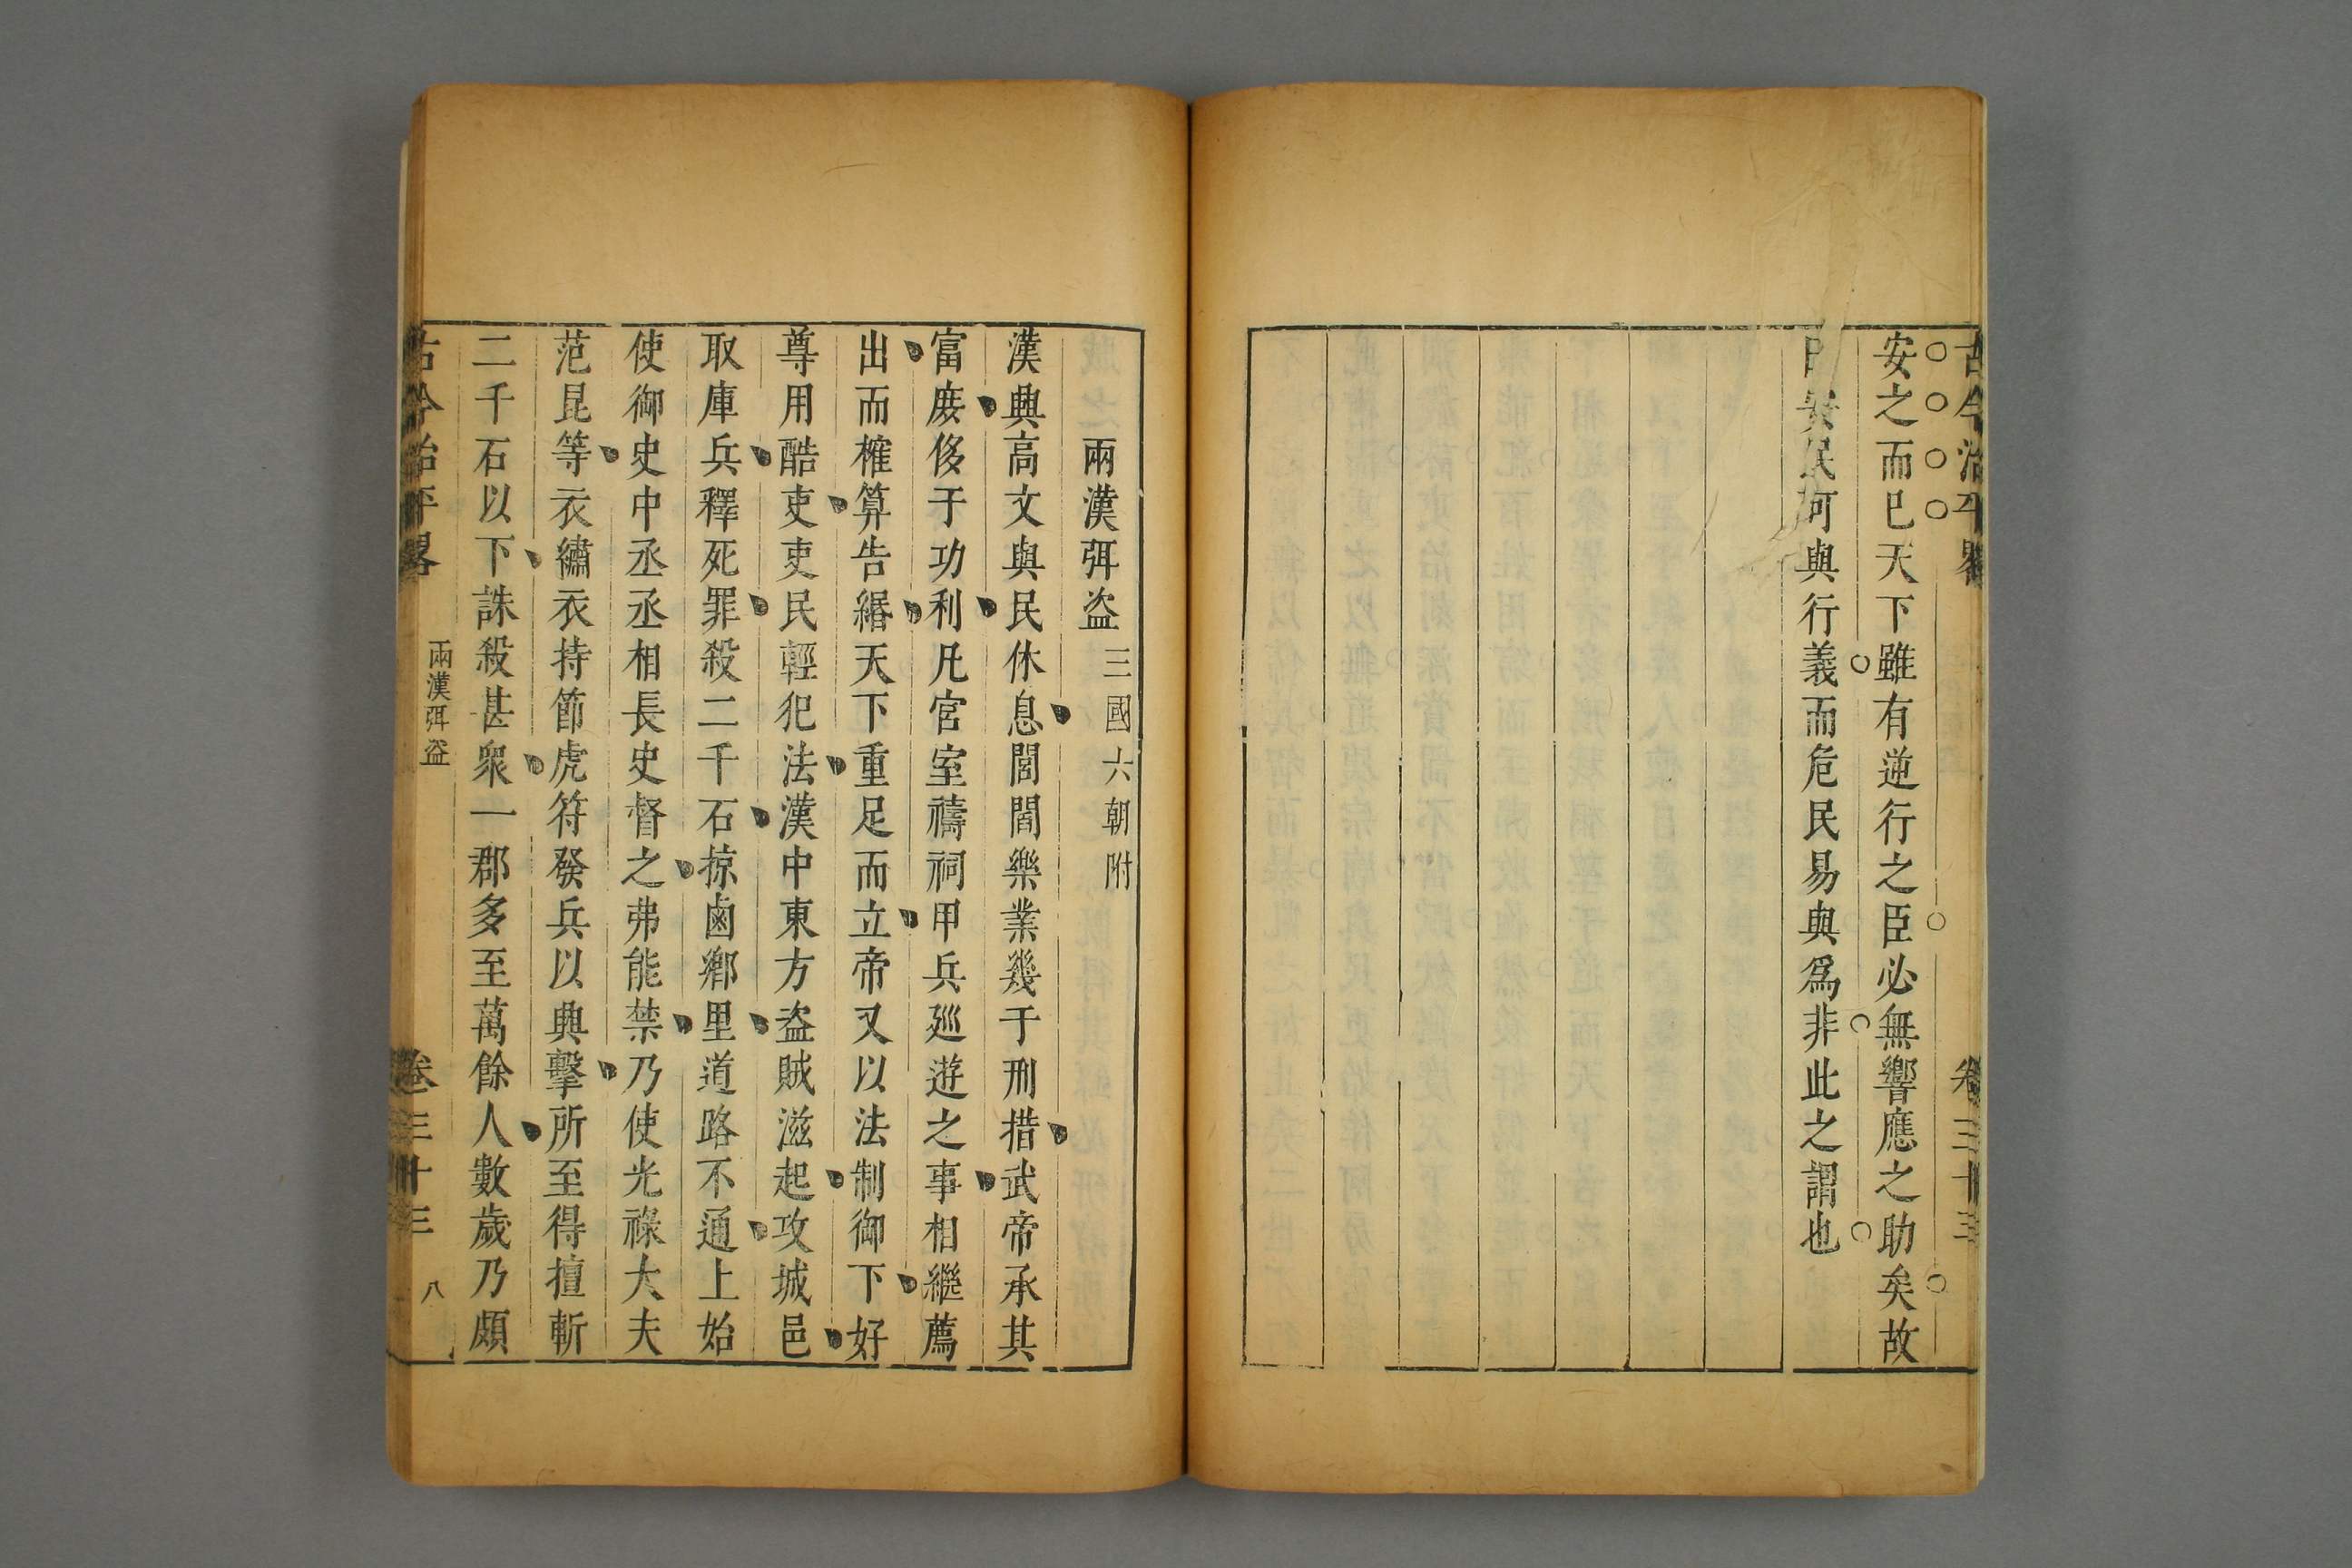 古今治平畧 卷三十三
安之而已天下雖有逆行之臣必無響應之助矣故
曰安民可與行義而危民易與爲非此之謂也
兩漢弭盗 三國六朝附
漢興高文與民休息閭閻樂業幾于刑措武帝承其
富庶侈于功利凡宮室禱祠甲兵廵遊之事相繼薦
出而榷算告緡天下重足而立帝又以法制御下好
尊用酷吏吏民輕犯法漢中東方盗賊滋起攻城邑
取庫兵釋死罪殺二千石掠鹵鄉里道路不通上始
使御史中丞丞相長史督之弗能禁乃使光祿大夫
范昆等衣繡衣持節虎符發兵以興擊所至得擅斬
二千石以下誅殺甚衆一郡多至萬餘人數歲乃頗
古今治平畧 兩漢弭盗 卷三十三 八